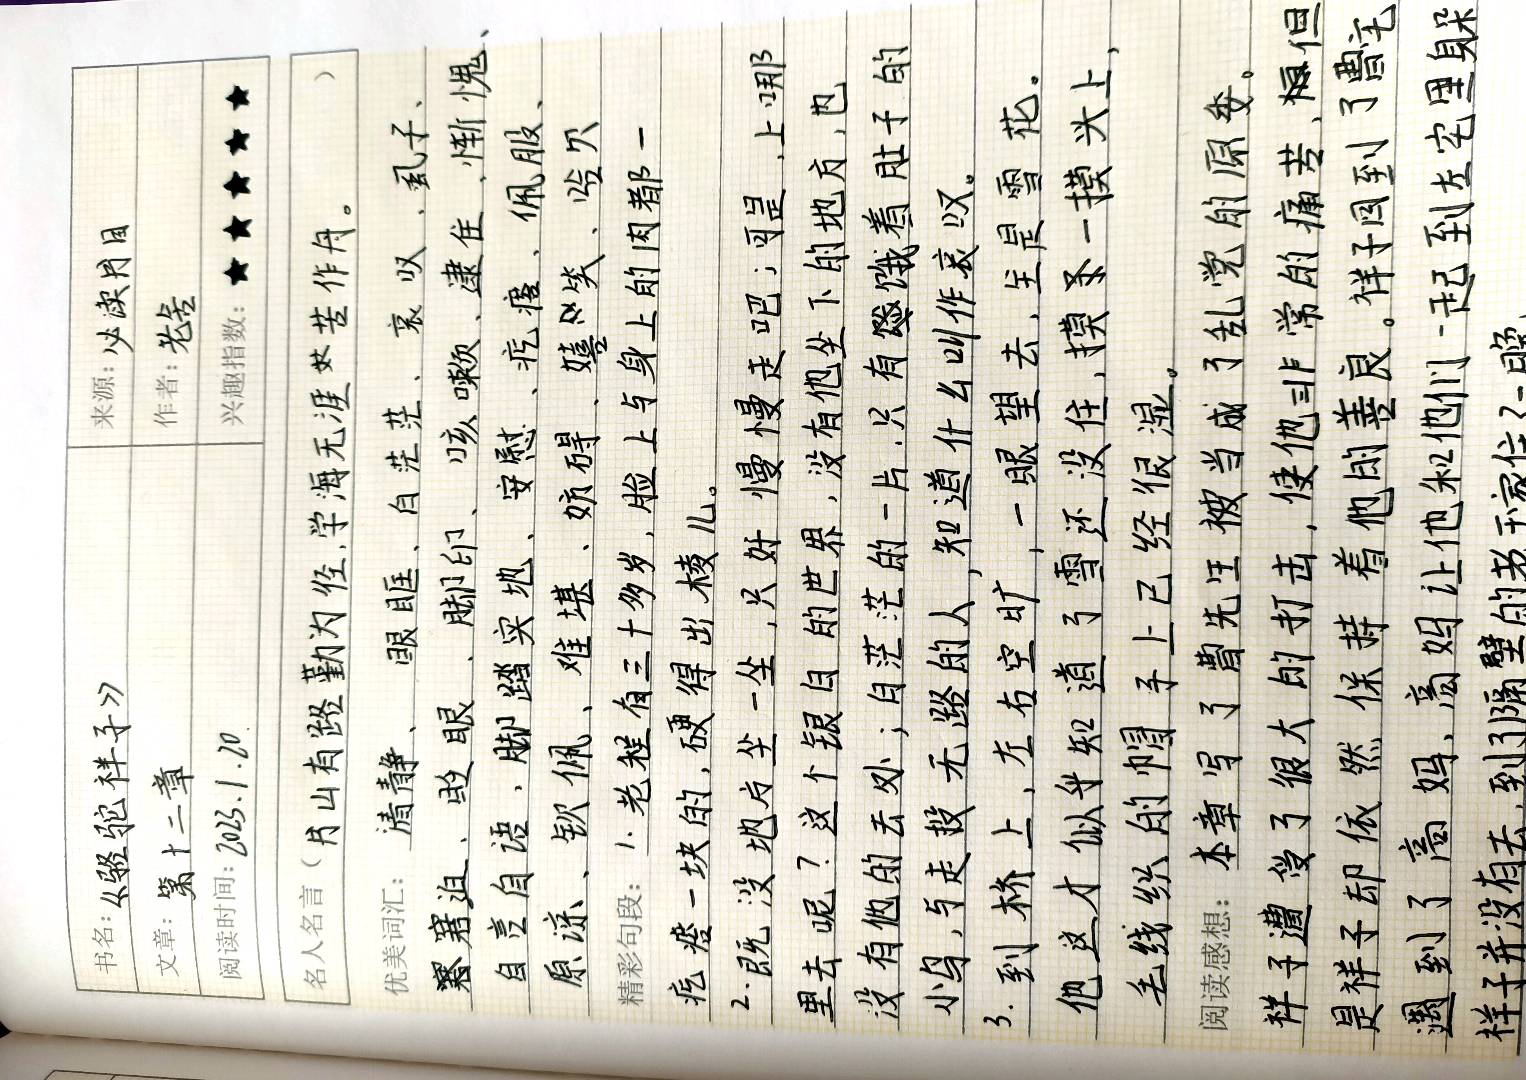 书名：《骆驼祥子》 来源：必读书目
文章：第十二章 作者：老舍
阅读时间：2023.1.20 兴趣指数：★★★★★
名人名言（书山有路勤为径，学海无涯苦作舟。）
优美词汇：清静、眼眶、白茫茫、哀叹、虱子、
窘迫、眨眼、脚印、咳嗽、逮住、惭愧、
自言自语、脚踏实地、安慰、疙瘩、佩服、
原谅、钦佩、难堪、妨碍、嬉笑、
精彩句段：1.老程有三十多岁，脸上与身上的肉都一
疙瘩一块的，硬得出棱儿。
2.既没地方坐一坐，只好慢慢走吧；可是，上哪
里去呢？这个银白的世界，没有他坐下的地方，也
没有他的去处；白茫茫的一片，只有饿着肚子的
小鸟，与走投无路的人，知道什么叫作哀叹。
3.到桥上，左右空旷，一眼望去，全是雪花。
他这才似乎知道了雪还没住，摸一摸头上，
毛线织的帽子上已经很湿。
阅读感想：本章写了曹先生被当成了乱党的原委。
祥子遭受了很大的打击，使他非常的痛苦，但
是祥子却依然保持着他的善良。祥子回到了曹宅
遇到了高妈，高妈让他和他们一起到左宅里躲
祥子并没有去，到了隔壁的老王家住了一晚，